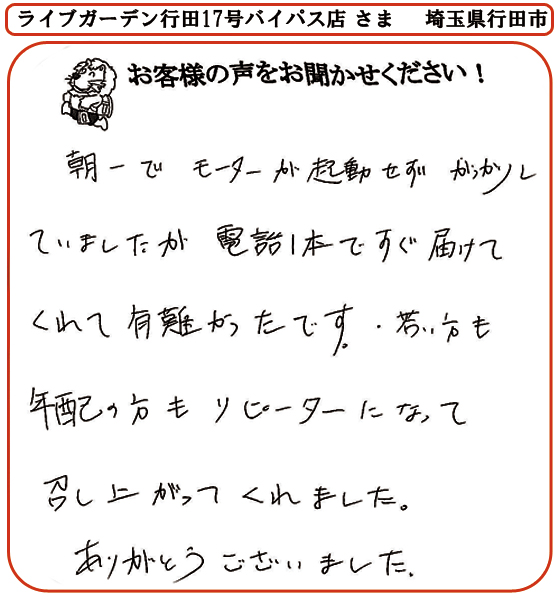 ライブガーデン行田17号バイパス店 さま 埼玉県行田市
お客様の声をお聞かせください！
朝一で モーターが起動せず がっかりし
ていましたが 電話1本ですぐ届けて
くれて有難かったです。・若い方も
年配の方も リピーターになって
召し上がってくれました。
ありがとうございました。